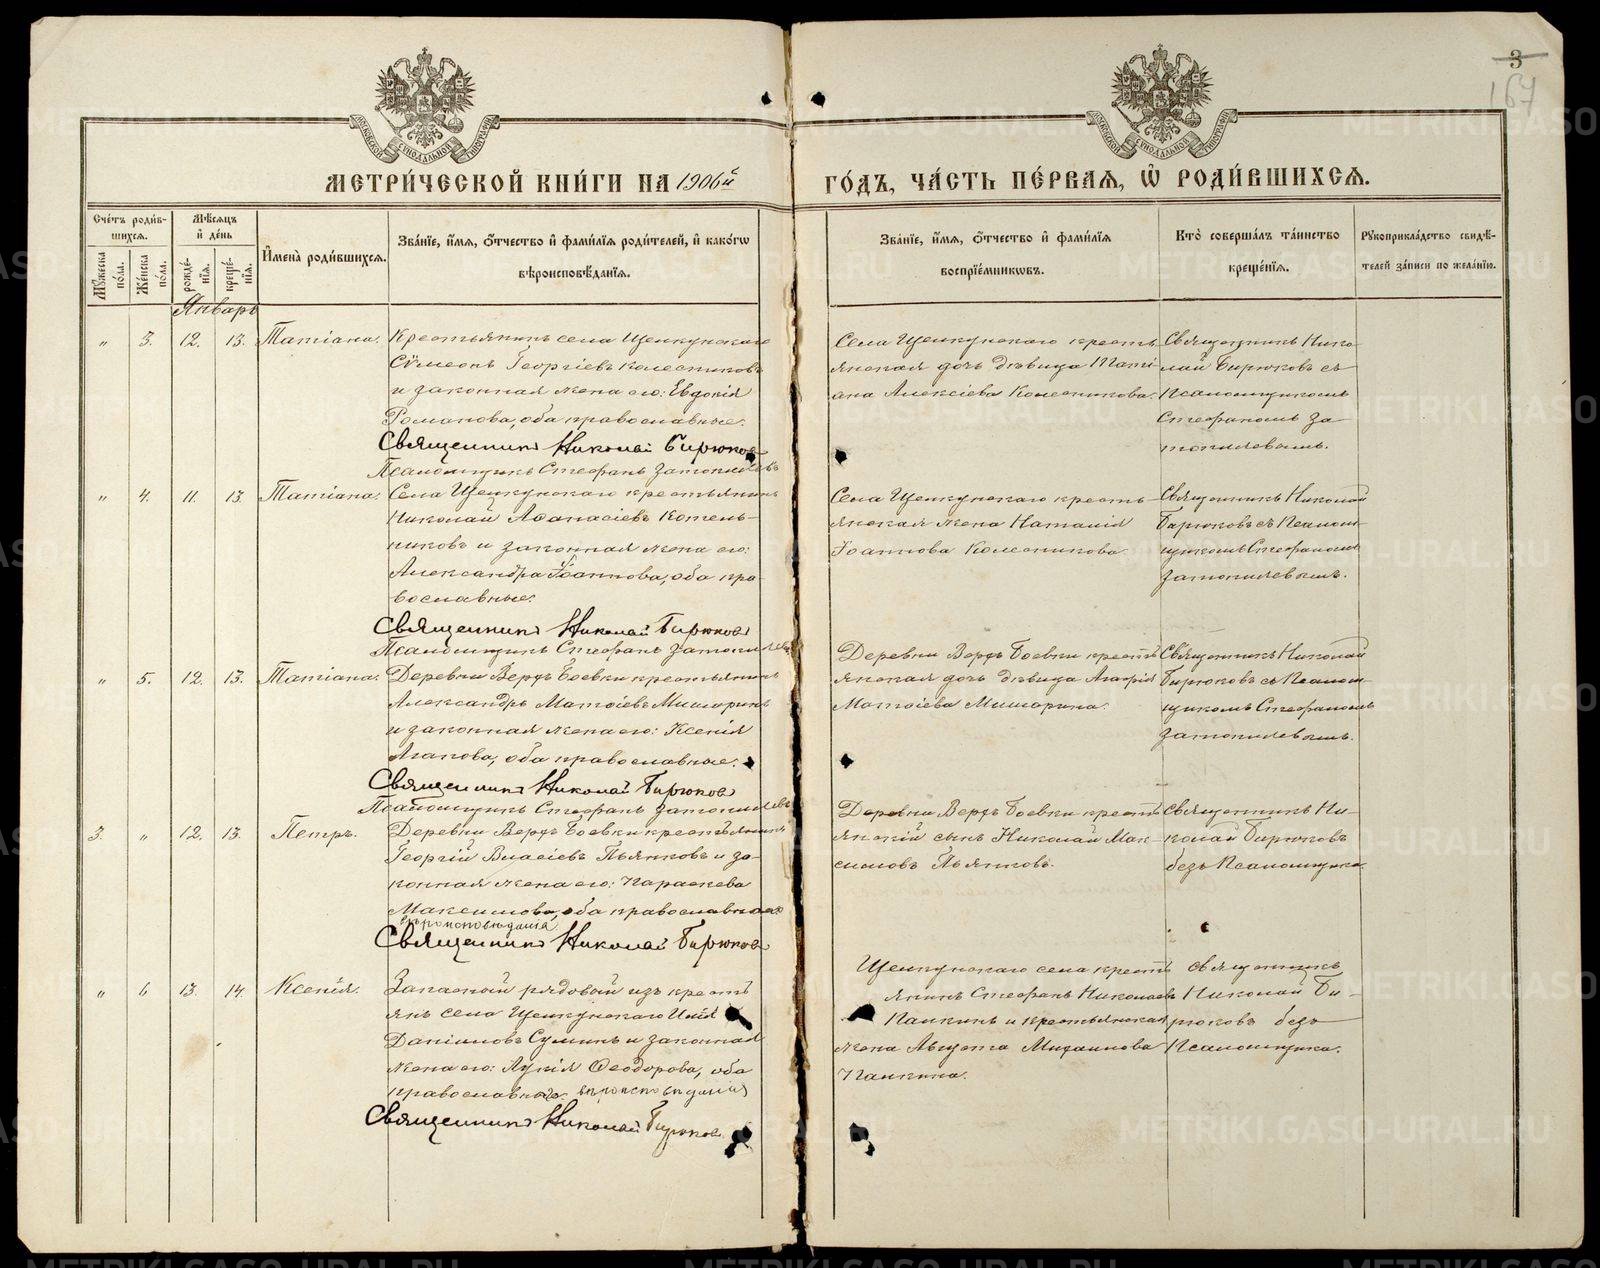 3
167
МЕТРИ́ЧЕСКОЙ КНИ́ГИ НА 1906й ГО́ДЪ, ЧА́СТЬ ПЕ́РВАЯ, Ѽ РОДИ́ВШИХСЯ.
Сче́тъ роди́вшихся.
Му́жеска по́ла.
Же́нска по́ла.
Мѣ́сяцъ и де́нь
рожде́нїя.
креще́нїя.
И҆мена̀ роди́вшихся.
Зва́нїе, и҆́мя, ѻ҆́тчество и҆ фамилїя роди́телей, и҆ како́гѡ
вѣроисповѣ́данїя.
Зва́нїе, и҆́мя, ѻ҆́тчество и҆ фами́лїя
воспрїе́мникѡвъ.
Кто̀ соверша́лъ та́инство
креще́нїя.
Рꙋкоприкла́дство свидѣ́-
телей за́писи по жела́нїю.
Январь
" 3. 12. 13. Татіана.
Крестьянинъ села Щелкунскаго
Сѵмеонъ Георгіевъ Колесниковъ
и законная жена его: Евдокія
Романова, оба православные.
Священникъ Николай Бирюковъ
Псаломщикъ Стефанъ Затопляевъ
Села Щелкунскаго кресть
янская дочь дѣвица Тати
ана Алексіева Колесникова.
Священникъ Нико
лай Бирюковъ съ
Псаломщикомъ
Стефаномъ За
топляевымъ.
" 4. 11. 13. Татіана.
Села Щелкунскаго крестьянинъ
Николай Аѳанасіевъ Котель-
никовъ и законная жена его:
Александра Іоаннова, оба пра-
вославные.
Священникъ Николай Бирюковъ
Псаломщикъ Стефанъ Затопляевъ
Села Щелкунскаго кресть-
янская жена Наталія
Іоаннова Колесникова.
Священникъ Николай
Бирюковъ съ Псалом-
щикомъ Стефаномъ
Затопляевымъ.
" 5. 12. 13. Татіана.
Деревни Верхъ Боевки крестьянинъ
Александръ Матѳіевъ Мишаринъ
и законная жена его: Ксенія
Агапова, оба православные.
Священникъ Николай Бирюковъ
Псаломщикъ Стефанъ Затопляевъ
Деревни Верхъ Боевки кресть
янская дочь дѣвица Агафія
Матѳіева Мишарина.
Священникъ Николай
Бирюковъ съ Псалом-
щикомъ Стефаномъ
Затопляевымъ.
3. " 12. 13. Петръ.
Деревни Верхъ Боевки крестьянинъ
Георгій Власіевъ Пьянковъ и за-
конная жена его: Параскева
Максимова, оба православнаго
вѣроисповѣданія
Священникъ Николай Бирюковъ
Деревни Верхъ Боевки кресть
янскій сынъ Николай Мак-
симовъ Пьянковъ.
Священникъ Ни-
колай Бирюковъ
безъ Псаломщика.
" 6 13. 14. Ксенія.
Запасный рядовый изъ кресть
янъ села Щелкунскаго Илія
Даніиловъ Суминъ и законная
жена его: Лукія Ѳеодорова, оба
православнаго вѣроисповѣданія
Священникъ Николай Бирюковъ
Щелкунскаго села кресть
янинъ Стефанъ Николаевъ
Палкинъ и крестьянская
жена Августа Михаилова
Палкина.
Священникъ
Николай Би-
рюковъ безъ
Псаломщика.